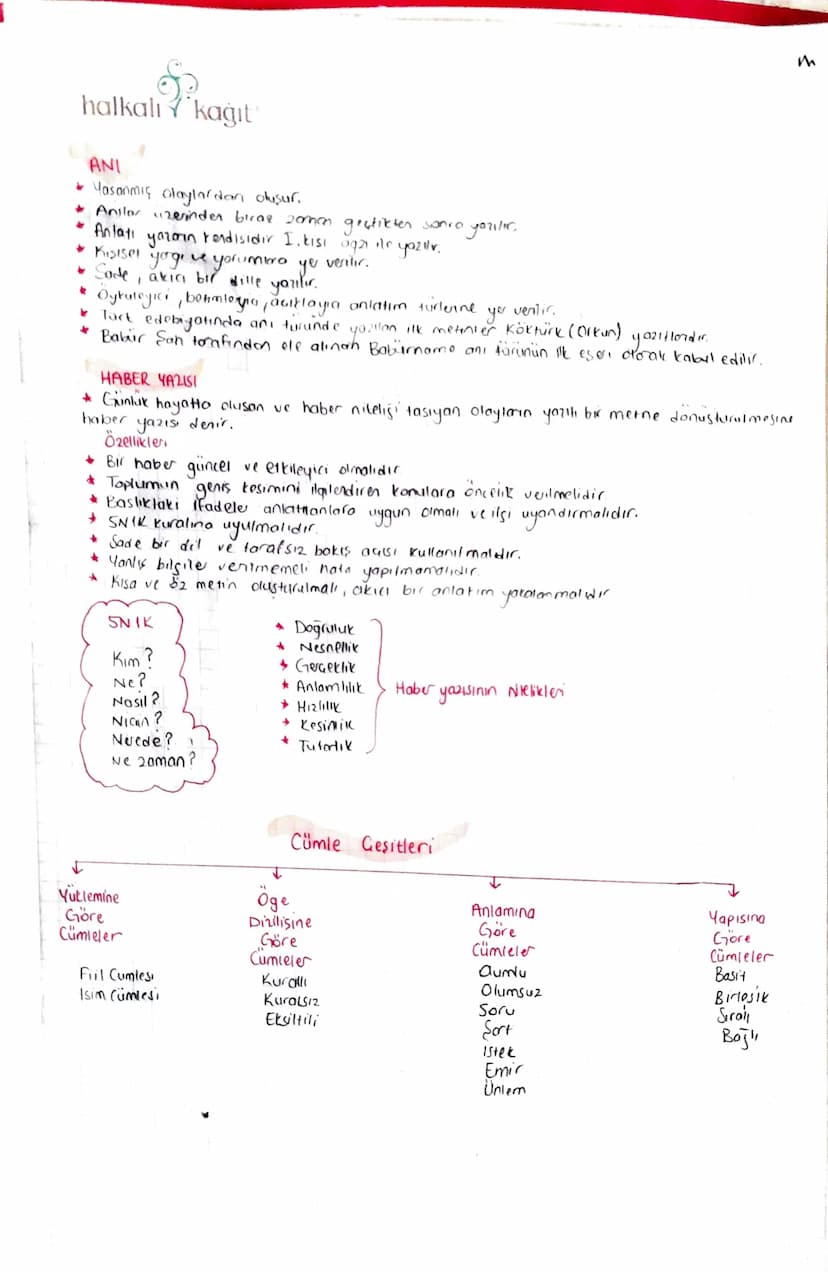 halkalı kağıt
ANI
* Yaşanmış olaylardan oluşur.
* Anılar üzerinden biraz zaman geçtikten sonra yazılır.
* Anlatı yazarın kendisidir I. kişi ağzı ile yazılır.
* Kişisel yargı ve yorumlara yer verilir.
* Sade, akıcı bir dille yazılır.
* Öyküleyici, betimleyici, açıklayıcı anlatım türlerine yer verilir.
* Türk edebiyatında anı türünde yazılan ilk metinler Köktürk (Orhun) yazıtlarıdır.
* Babür Şah tarafından ele alınan Babürname anı türünün ilk eseri olarak kabul edilir.
HABER YAZISI
* Günlük hayatta oluşan ve haber niteliği taşıyan olayların yazılı bir metne dönüştürülmesine
haber yazısı denir.
Özellikleri
* Bir haber güncel ve etkileyici olmalıdır
* Toplumun geniş kesimini ilgilendiren konulara öncelik verilmelidir
* Başlıktaki ifadeler anlatılanlara uygun olmalı ve ilgi uyandırmalıdır.
* 5N1K kuralına uyulmalıdır.
* Sade bir dil ve tarafsız bakış açısı kullanılmalıdır.
* Yanlış bilgiler verilmemeli hata yapılmamalıdır.
* Kısa ve öz metin oluşturulmalı, akıcı bir anlatım yakalanmalıdır
5N1K
Kim?
Ne?
Nasıl?
Niçin?
Nerede?
Ne zaman?
* Doğruluk
* Nesnellik
* Gerçeklik
* Anlamlılık
* Hızlılık
* Kesinlik
* Tutarlık
Haber yazısının Nitelikleri
Cümle Çeşitleri
Yüklemine
Göre
Cümleler
Fiil Cümlesi
İsim Cümlesi
Öge
Dizilişine
Göre
Cümleler
Kurallı
Kuralsız
Eksiltili
Anlamına
Göre
Cümleler
Olumlu
Olumsuz
Soru
Şart
İstek
Emir
Ünlem
Yapısına
Göre
Cümleler
Basit
Birleşik
Sıralı
Bağlı